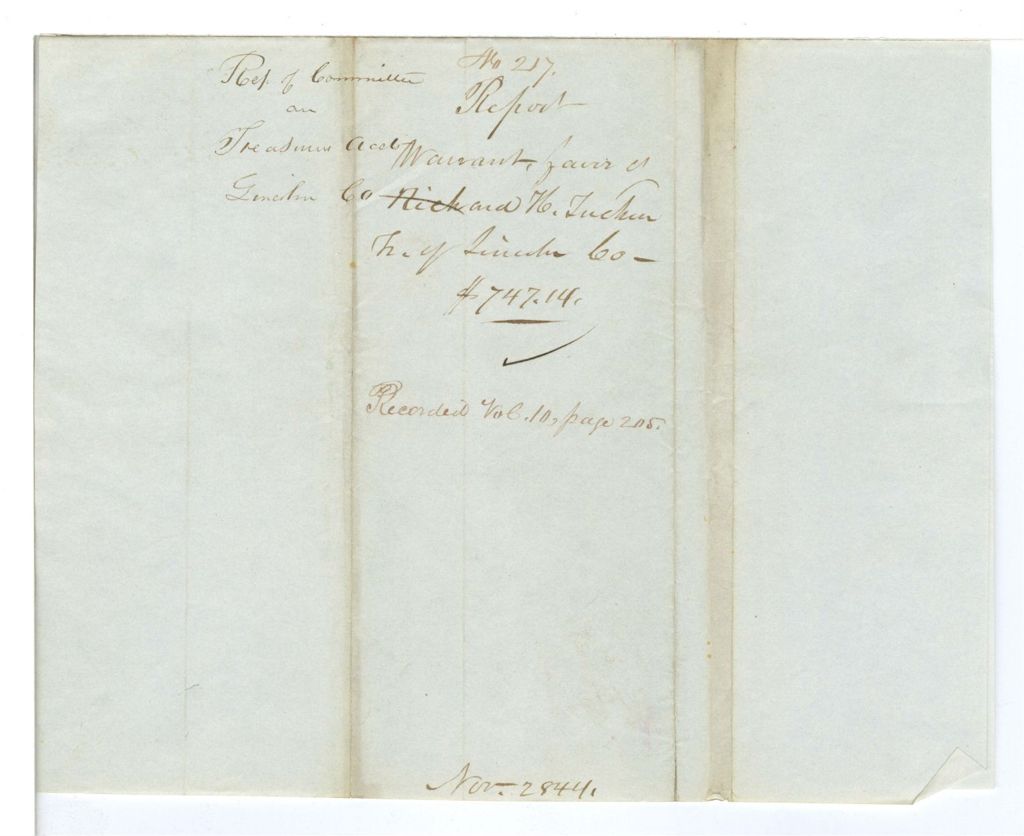 Rep. of Committee
on
Treasurers Acct
Lincoln Co
No 217.
Report
Warrant, favor of
Richard H. Tucker
Tr. of Lincoln Co —
$747.14.
Recorded Vol. 10, page 205.
Nov. 2 844.